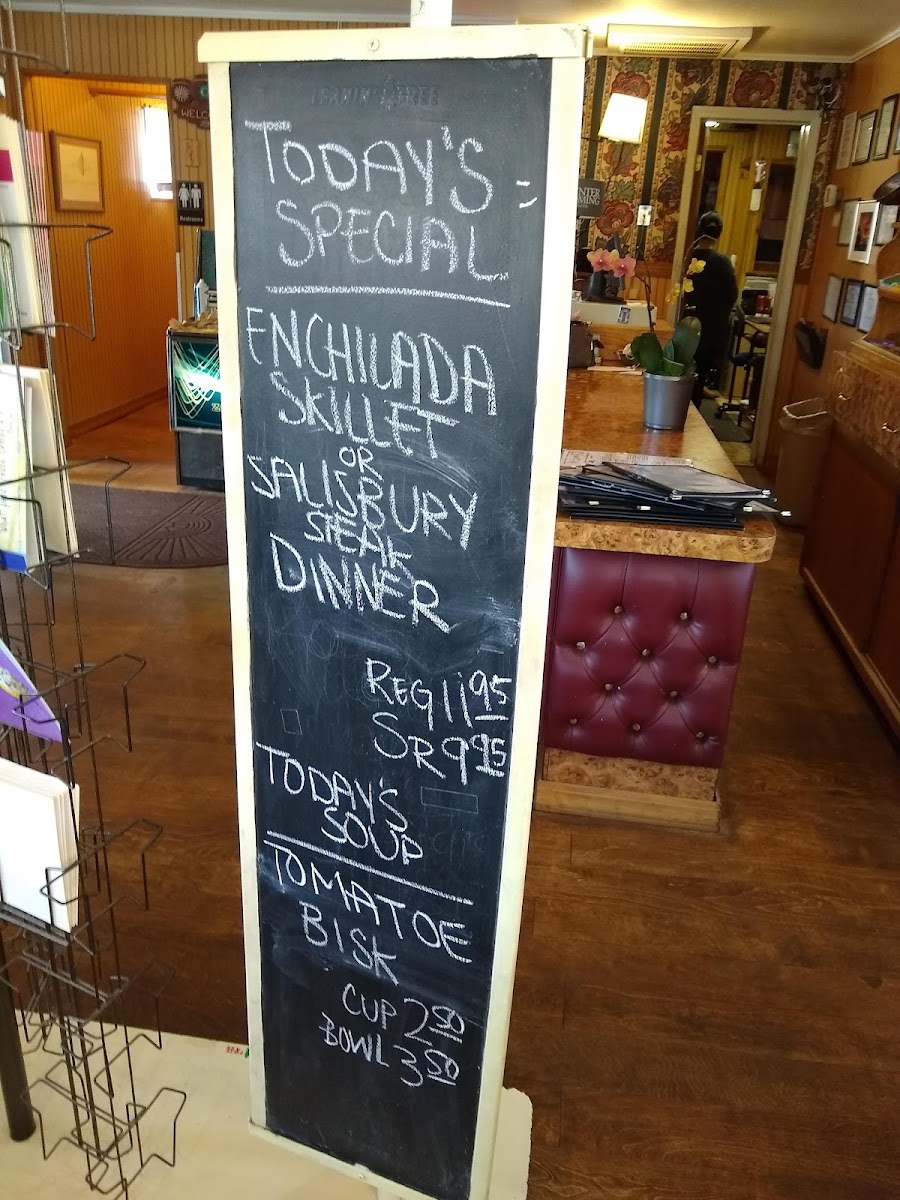 WELCO
Restrooms
LEANIN' TREE
TODAY'S =
SPECIAL
ENCHILADA
SKILLET
OR
SALISBURY
STEAK
DINNER
REG 11 95
SR 9 95
TODAY'S
SOUP
TOMATOE
BISK
CUP 2 50
BOWL 3 50